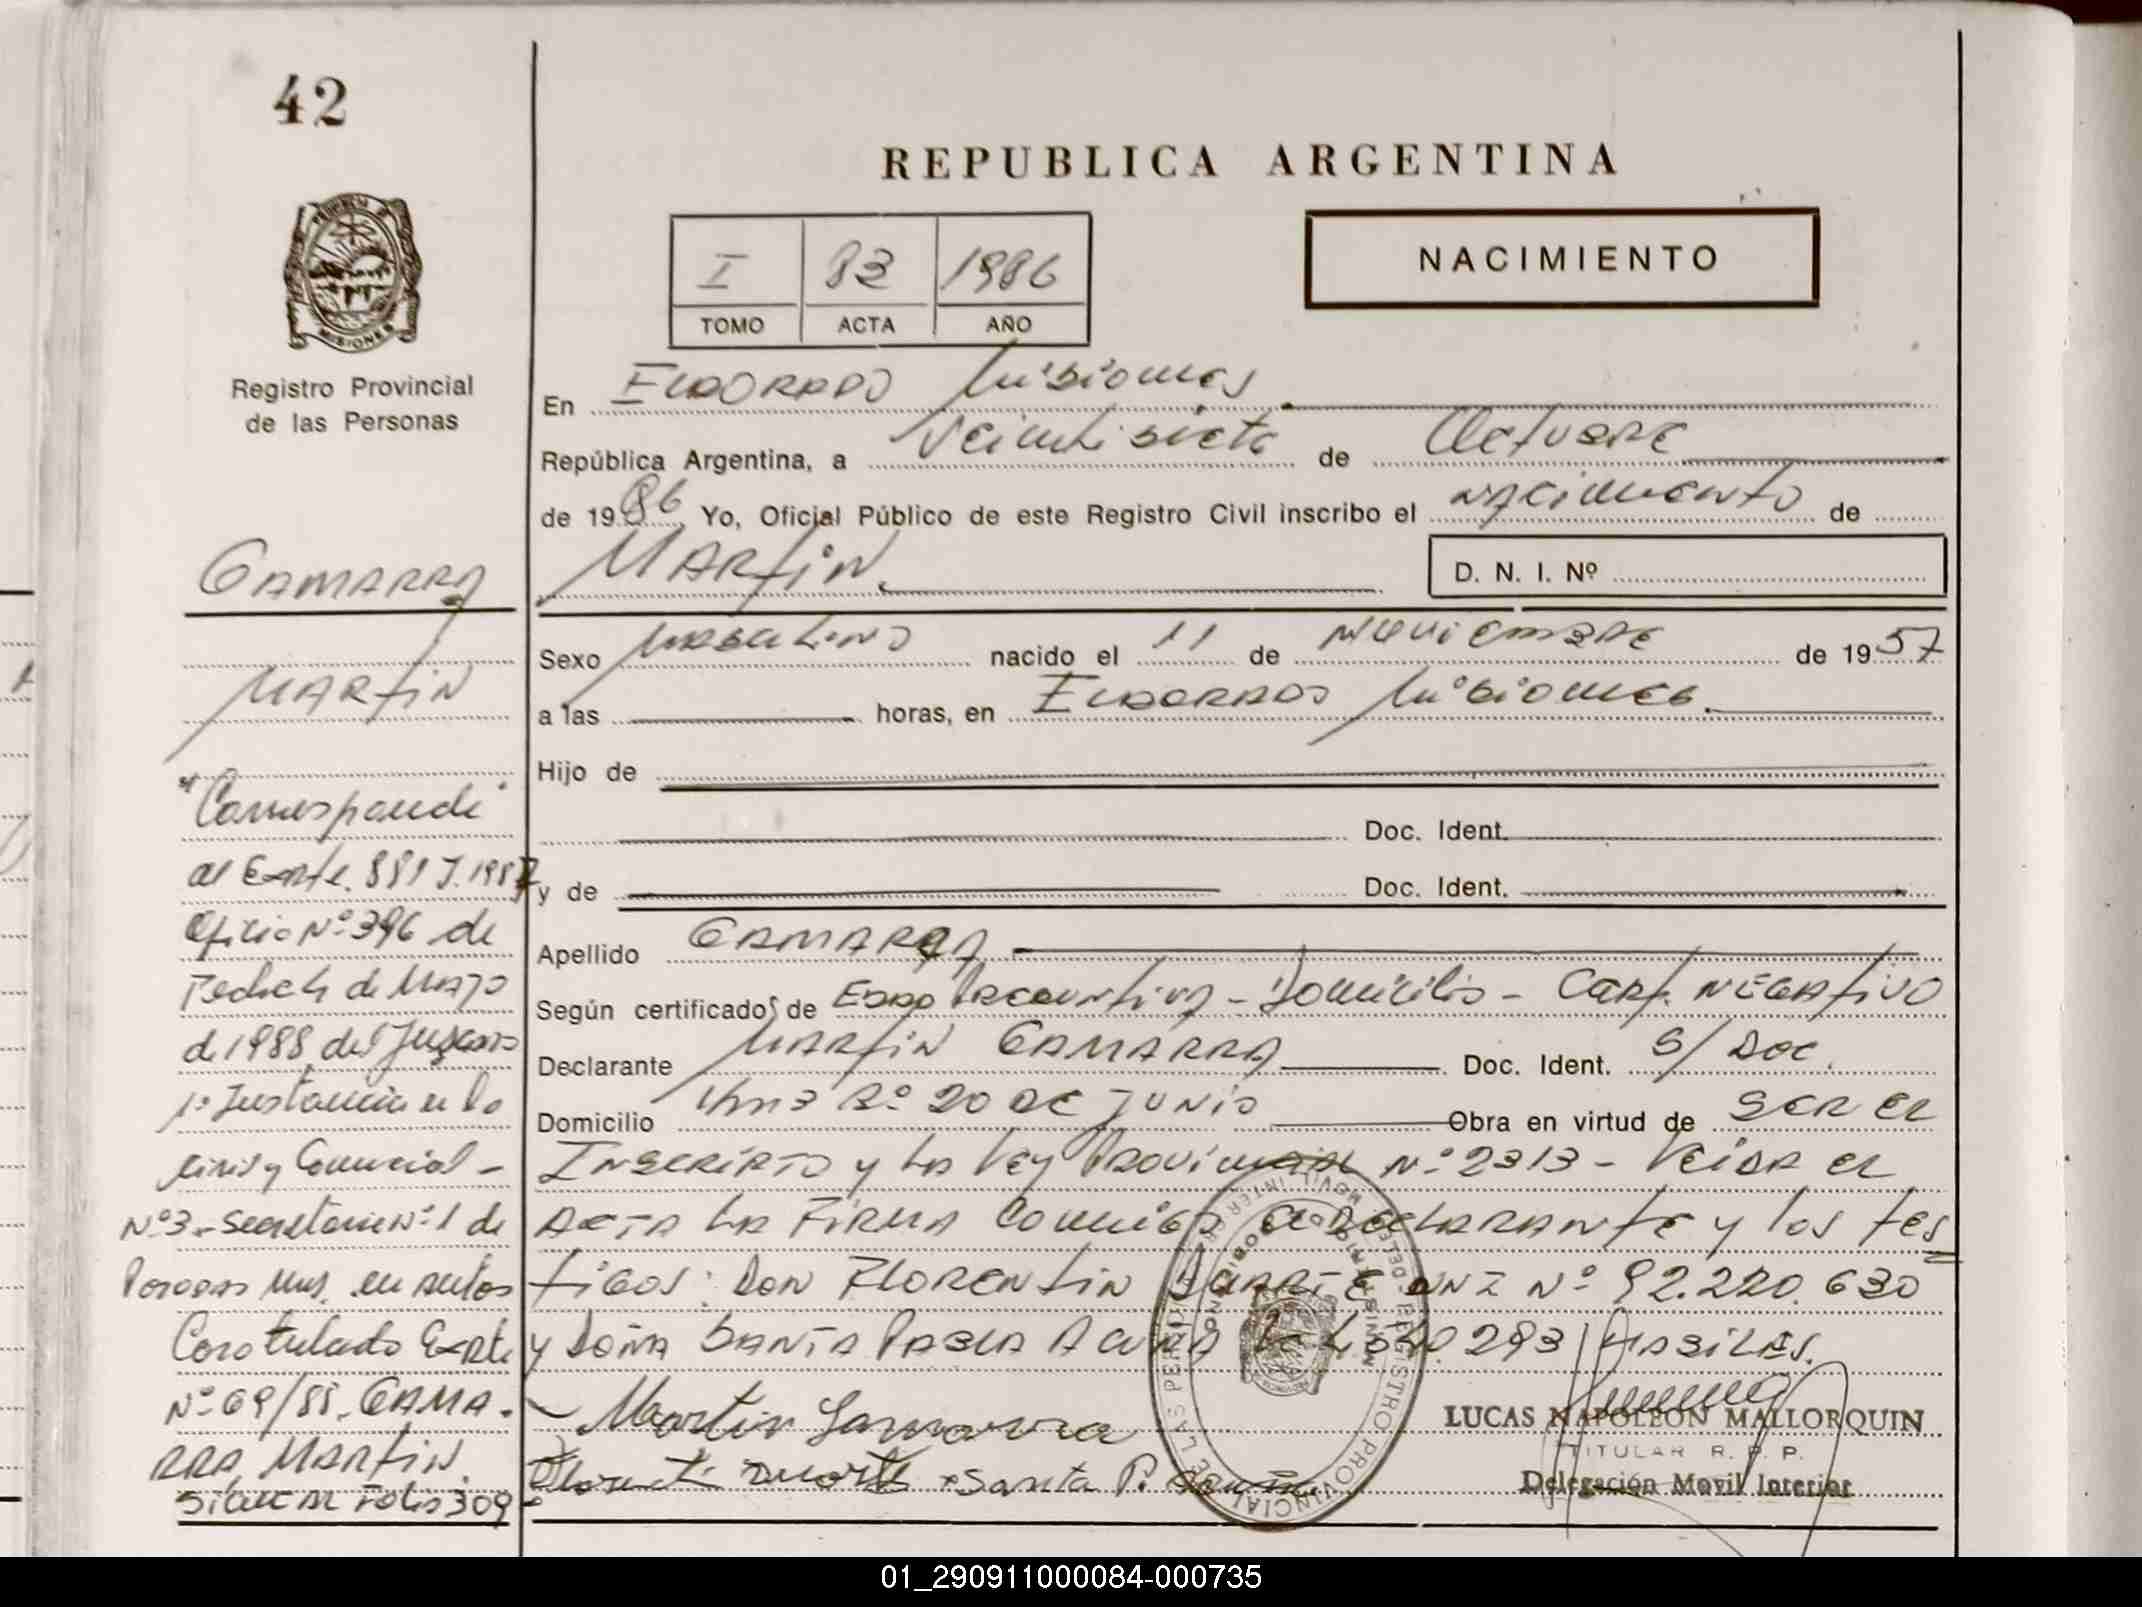 42
REPUBLICA ARGENTINA
NACIMIENTO
I 83 1986
TOMO ACTA AÑO
MISIONES
Registro Provincial
de las Personas
En Eldorado Misiones
República Argentina, a veintisiete de Octubre
de 1986 Yo, Oficial Público de este Registro Civil inscribo el nacimiento de
Martin
D. N. I. Nº
Sexo Masculino nacido el 11 de noviembre de 1957
a las horas, en Eldorado Misiones
Hijo de
Doc. Ident.
y de Doc. Ident.
Apellido GAMARRA
Según certificados de Edad Presuntiva - Domicilio - Cart. Negativo
Declarante Martin GAMARRA Doc. Ident. S/ Doc.
Domicilio Km 3 Bº 20 de Junio Obra en virtud de ser el
Inscripto y la Ley Provincial Nº 2313 - Leida el
Acta la Firma Conmigo el Declarante y los tes
tigos: Don Florentin Duarte DNI Nº 92.220.630
y Doña Santa Pabla Acuña 293 Habiles.
Martin Gamarra
Santa P. Acuña
LUCAS NAPOLEON MALLORQUIN
TITULAR R. P. P.
Delegación Movil Interior
GAMARRA
MARTIN
"Corresponde"
al Expte. 881 J. 1987
Oficio Nº 396 de
Fecha 4 de Mayo
de 1988 del Juzgado
1º Instancia en lo
Civil y Comercial -
Nº 3 - Secretaria Nº 1 de
Posadas Mnes. en autos
Carotulado Expte
Nº 69/88. GAMA.
RRA MARTIN.
Sigue al Folio 309
REGISTRO PROVINCIAL DE LAS PERSONAS
01_290911000084-000735